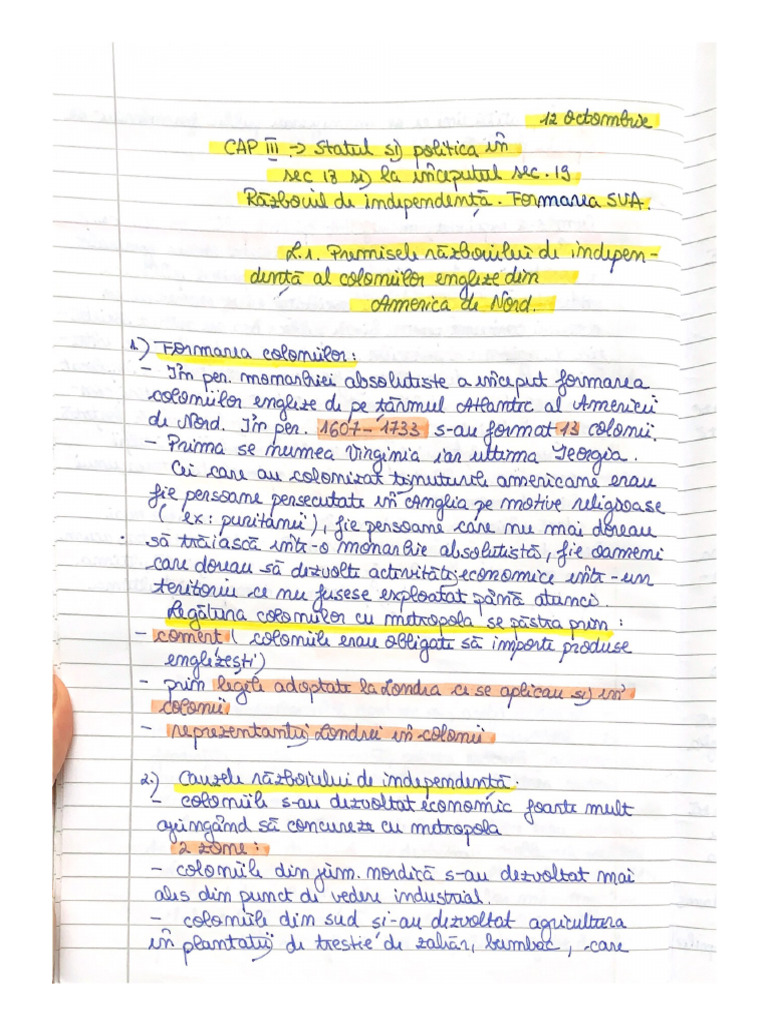 12 Octombrie
CAP III → Statul și politica în
sec 18 și la începutul sec. 19
Războiul de independență. Formarea SUA.
L.1. Premisele războiului de indepen-
dență al coloniilor engleze din
America de Nord.
1.) Formarea coloniilor:
- În per. monarhiei absolutiste a început formarea
coloniilor engleze de pe țărmul Atlantic al Americii
de Nord. În per. 1607-1733 s-au format 13 colonii.
- Prima se numea Virginia iar ultima Georgia.
Cei care au colonizat ținuturile americane erau
fie persoane persecutate în Anglia pe motive religioase
( ex: puritanii), fie persoane care nu mai doreau
să trăiască într-o monarhie absolutistă, fie oameni
care doreau să dezvolte activități economice într-un
teritoriu ce nu fusese exploatat până atunci.
Legătura coloniilor cu metropola se păstra prin:
- comerț ( coloniile erau obligate să importe produse
englezești)
- prin legile adoptate la Londra ce se aplicau și în
colonii.
- reprezentanții Londrei în colonii
2.) Cauzele războiului de independență.
- coloniile s-au dezvoltat economic foarte mult
ajungând să concureze cu metropola
2 zone:
- coloniile din jum. nordică s-au dezvoltat mai
ales din punct de vedere industrial.
- coloniile din sud și-au dezvoltat agricultura
în plantații de trestie de zahăr, bumbac, care